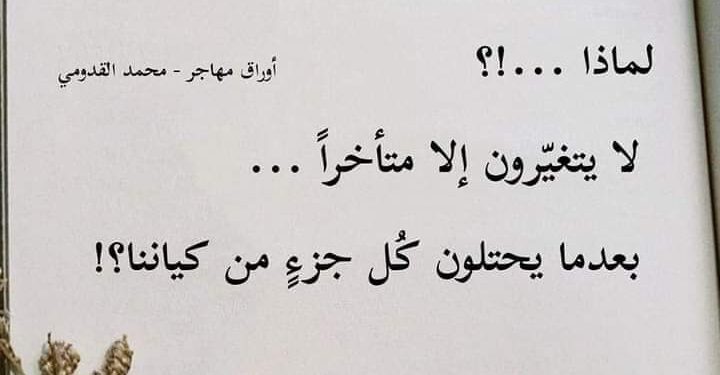 لماذا ...!؟
أوراق مهاجر - محمد القدومي
لا يتغيّرون إلا متأخراً ...
بعدما يحتلون كُل جزءٍ من كياننا؟!